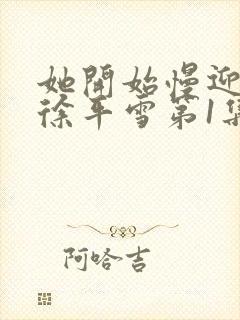 她開始慢迎
徐平雪第1集
阿哈吉